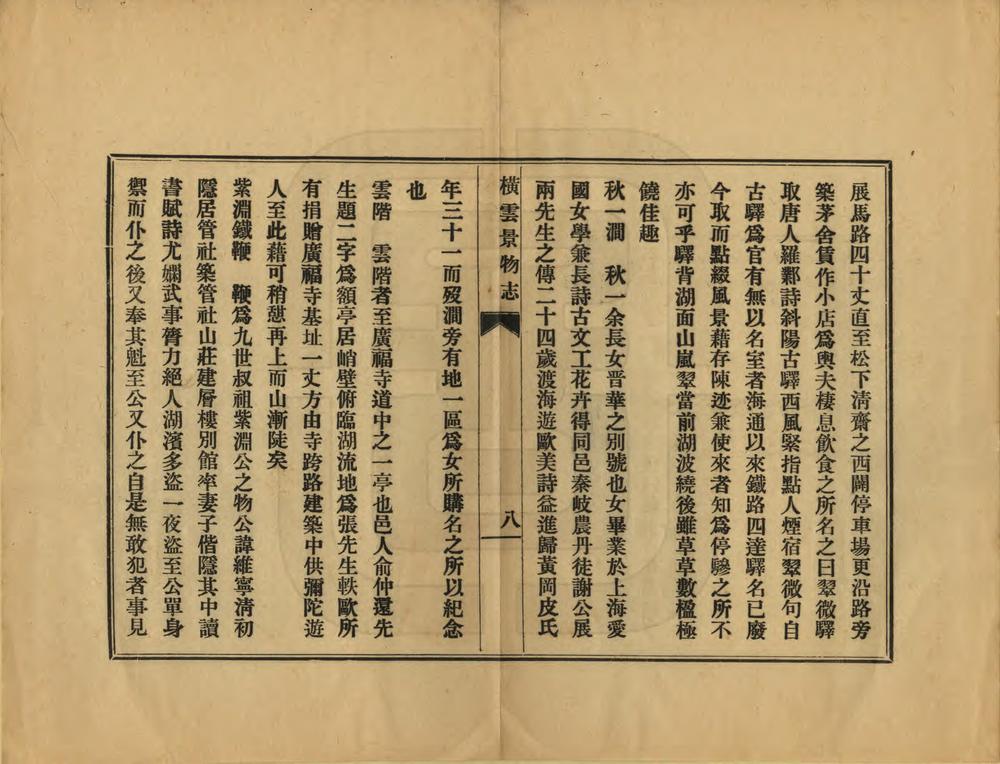 展馬路四十丈直至松下清齋之西闢停車場更沿路旁
築茅舍賃作小店爲輿夫棲息飲食之所名之曰翠微驛
取唐人羅鄴詩斜陽古驛西風緊指點人煙宿翠微句自
古驛爲官有無以名室者海通以來鐵路四達驛名已廢
今取而點綴風景藉存陳迹兼使來者知爲停驂之所不
亦可乎驛背湖面山嵐翠當前湖波繞後雖草草數楹極
饒佳趣
秋一澗　秋一余長女晋華之別號也女畢業於上海愛
國女學兼長詩古文工花卉得同邑秦岐農丹徒謝公展
兩先生之傳二十四歲渡海遊歐美詩益進歸黃岡皮氏
橫雲景物志
八
年三十一而歿澗旁有地一區爲女所購名之所以紀念
也
雲階　雲階者至廣福寺道中之一亭也邑人俞仲還先
生題二字爲額亭居峭壁俯臨湖流地爲張先生軼歐所
有捐贈廣福寺基址一丈方由寺跨路建築中供彌陀遊
人至此藉可稍憇再上而山漸陡矣
紫淵鐵鞭　鞭爲九世叔祖紫淵公之物公諱維寧清初
隱居管社築管社山莊建層樓別館率妻子偕隱其中讀
書賦詩尤嫻武事膂力絕人湖濱多盜一夜盜至公單身
禦而仆之後又奉其魁至公又仆之自是無敢犯者事見